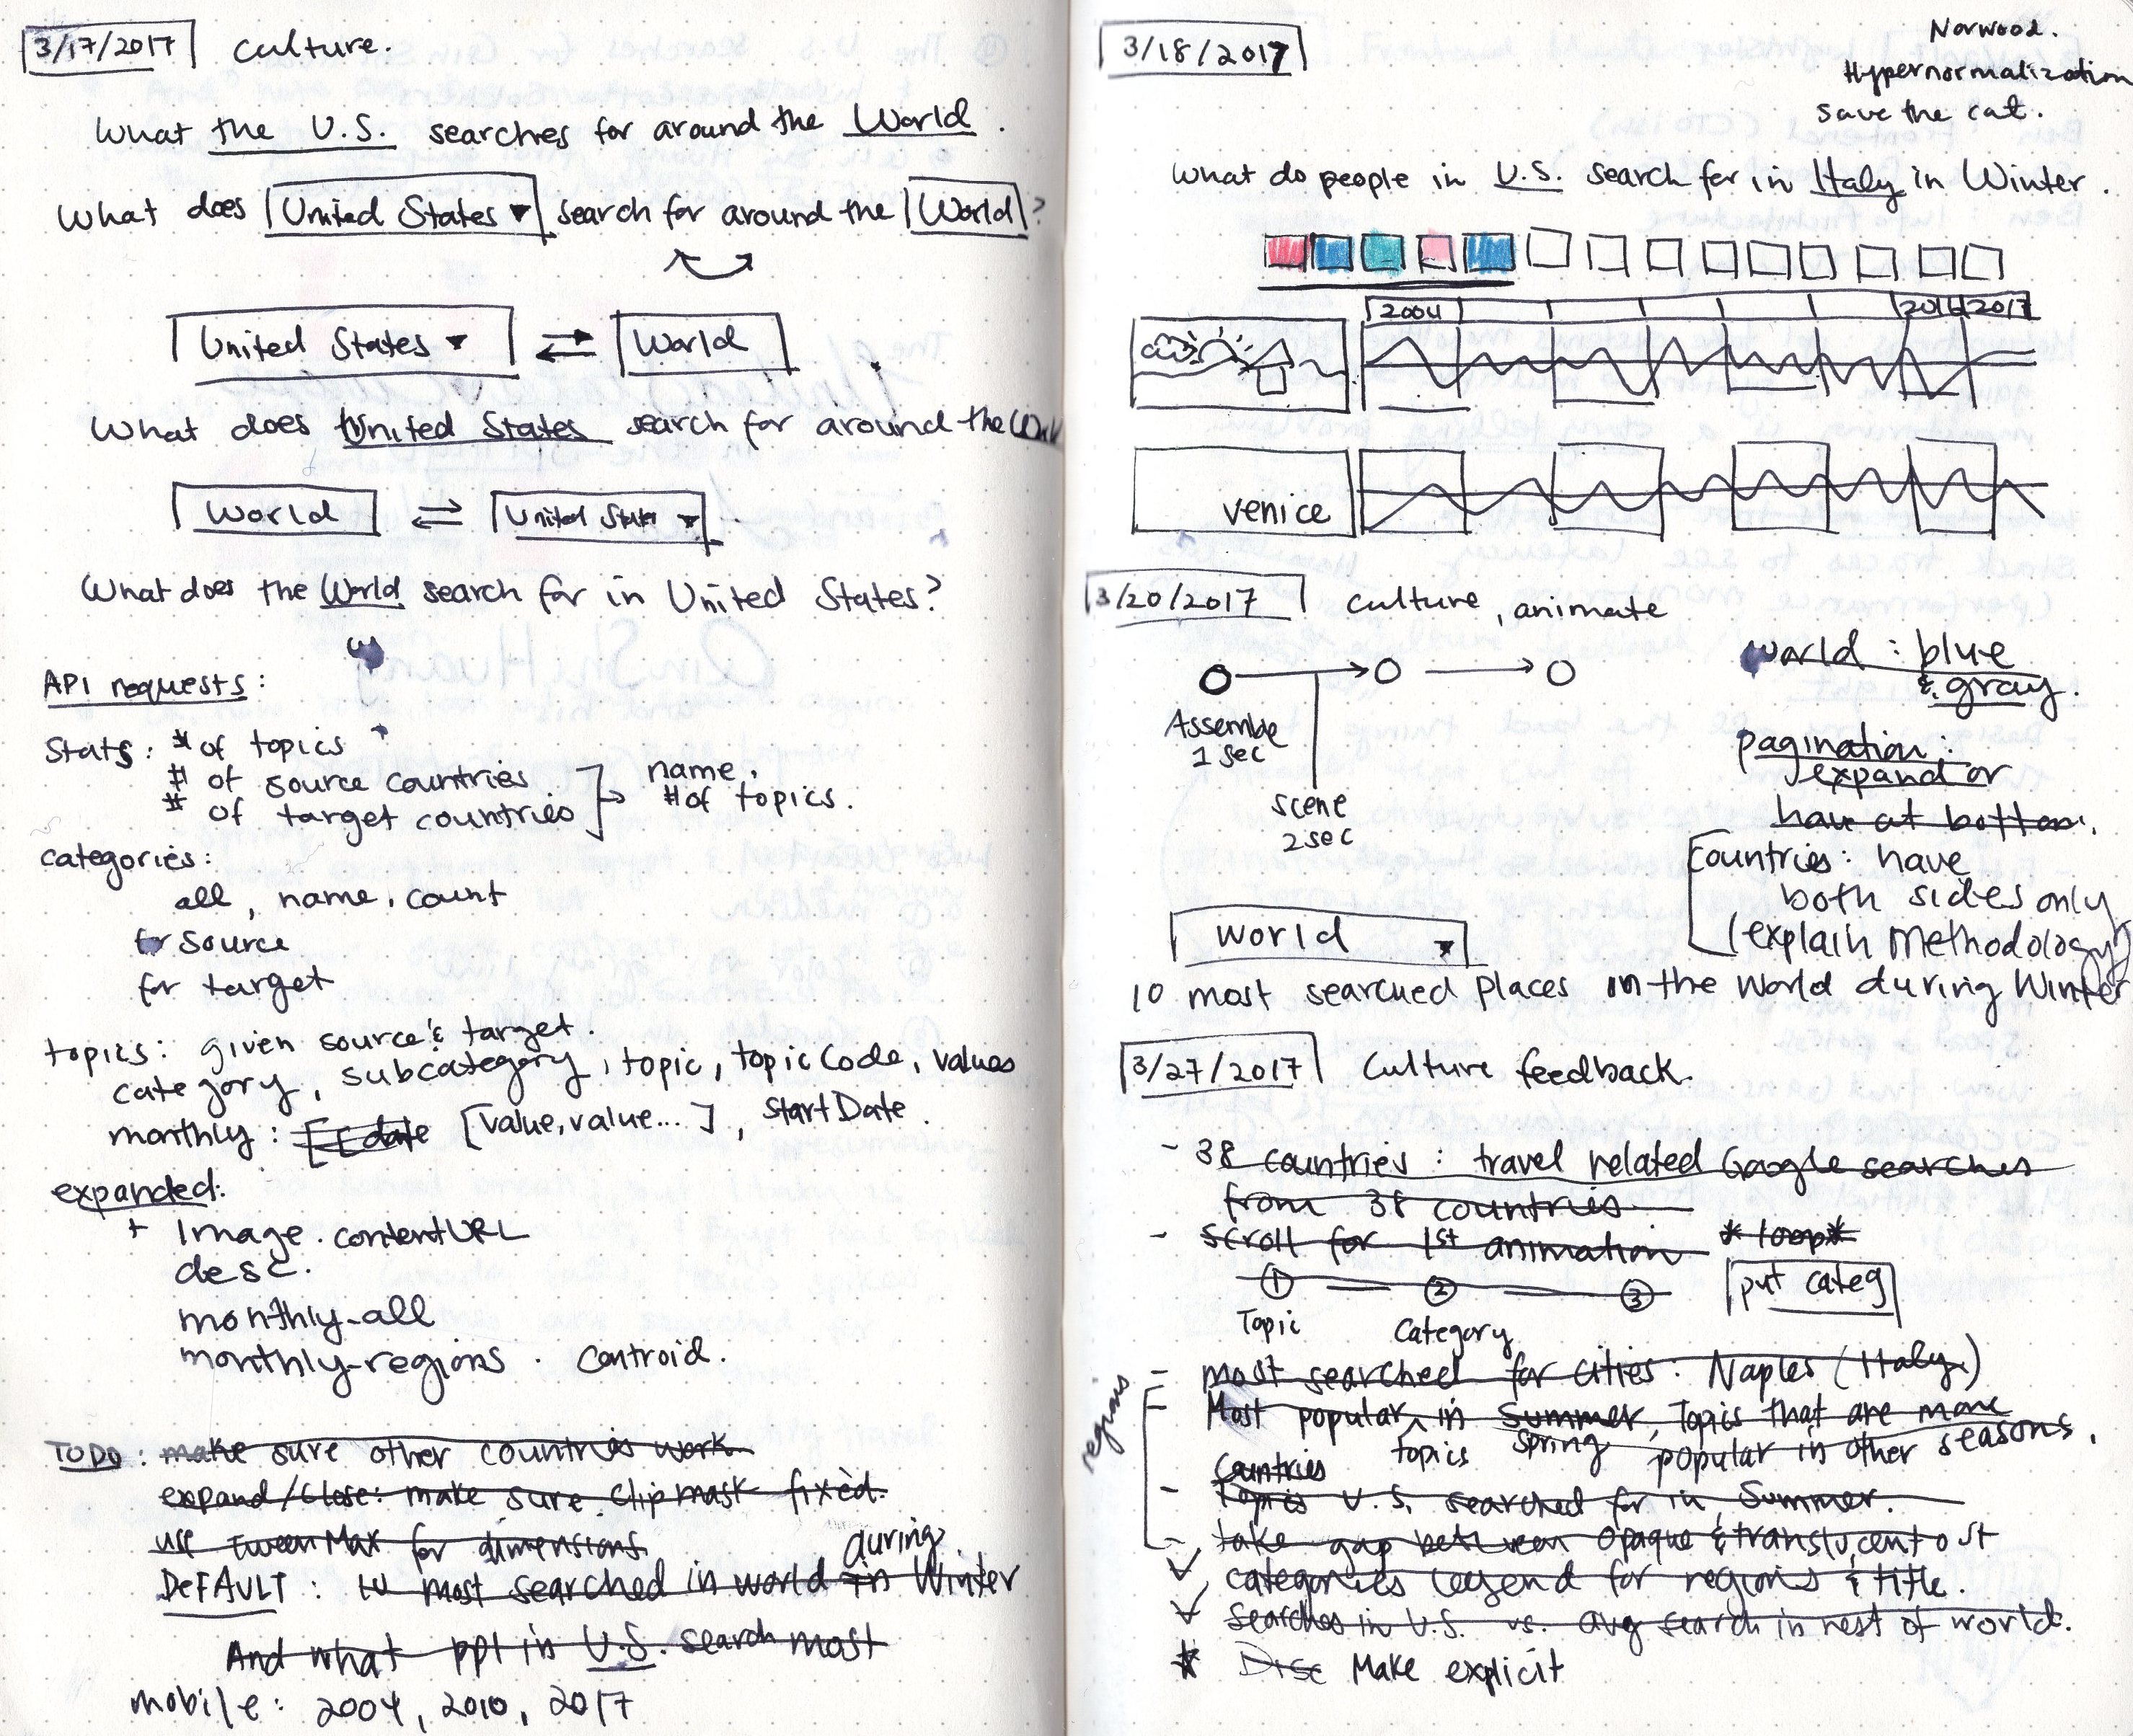 3/17/2017 culture.
What the U.S. searches for around the World.
What does United States ▼ search for around the World?
United States ▼ ⇄ World
What does United States search for around the
World ⇄ United State ▼
What does the World search for in United States?
API requests:
Stats: # of topics
# of source countries
# of target countries
name,
# of topics.
categories:
all, name, count
for source
for target
topics: given source & target.
category, subcategory, topic, topicCode, values
monthly: [[date [value, value...], startDate.
expanded:
+ image.contentURL
desc.
monthly-all
monthly-regions. centroid.
TODO: make sure other countries work
expand/close: make sure clipmask fixed.
use TweenMax for dimensions
during
DEFAULT: 10 most searched in world in Winter
And what ppl in U.S. search most
mobile: 2004, 2010, 2017
3/18/2017
Norwood.
Hypernormalization
save the cat.
What do people in U.S. search for in Italy in Winter.
2004 2016 2017
venice
3/20/2017 culture, animate
Assembe
1 sec
scene
2 sec
world: blue
& gray.
pagination:
expand or
have at bottom.
Countries: have
both sides only
(explain methodology)
World ▼
10 most searched places in the world during Winter
3/27/2017 Culture feedback.
- 38 countries: travel related Google searches
from 38 countries
- scroll for 1st animation *loop*
① ② ③
Topic Category
put categ
regions
- most searched for cities: Naples (Italy)
- Most popular in Summer, Topics that are more
topics spring popular in other seasons.
Countries
- Topics U.S. searched for in Summer.
- take gap between opaque & translucent out
✓ categories legend for regions & title.
✓ Searches in U.S. vs. avg search in rest of world.
* Disc Make explicit